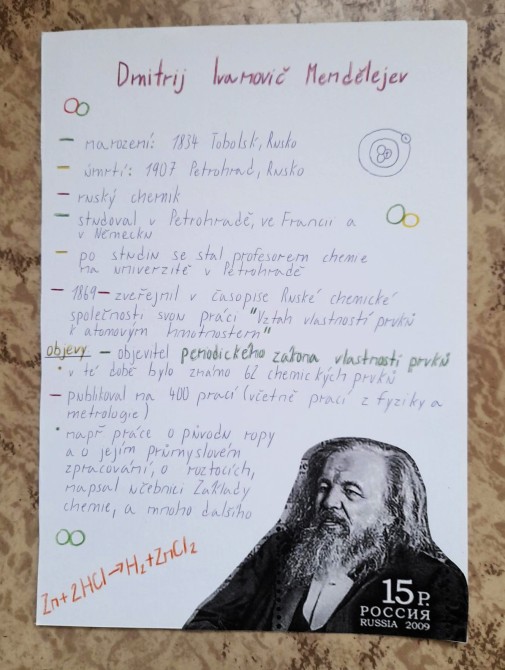 Dmitrij Ivanovič Mendělejev
– narození: 1834 Tobolsk, Rusko
– úmrtí: 1907 Petrohrad, Rusko
– ruský chemik
– studoval v Petrohradě, ve Francii a
v Německu
– po studiu se stal profesorem chemie
na univerzitě v Petrohradě
– 1869 – zveřejnil v časopise Ruské chemické
společnosti svou práci "Vztah vlastností prvků
k atomovým hmotnostem"
objevy – objevitel periodického zákona vlastností prvků
• v té době bylo známo 62 chemických prvků
– publikoval na 400 prací (včetně prací z fyziky a
metrologie)
• např práce o původu ropy
a o jejím průmyslovém
zpracování, o roztocích,
napsal učebnici Základy
chemie, a mnoho dalšího
Zn+2HCl→H₂+ZnCl₂
15 Р.
РОССИЯ
RUSSIA 2009